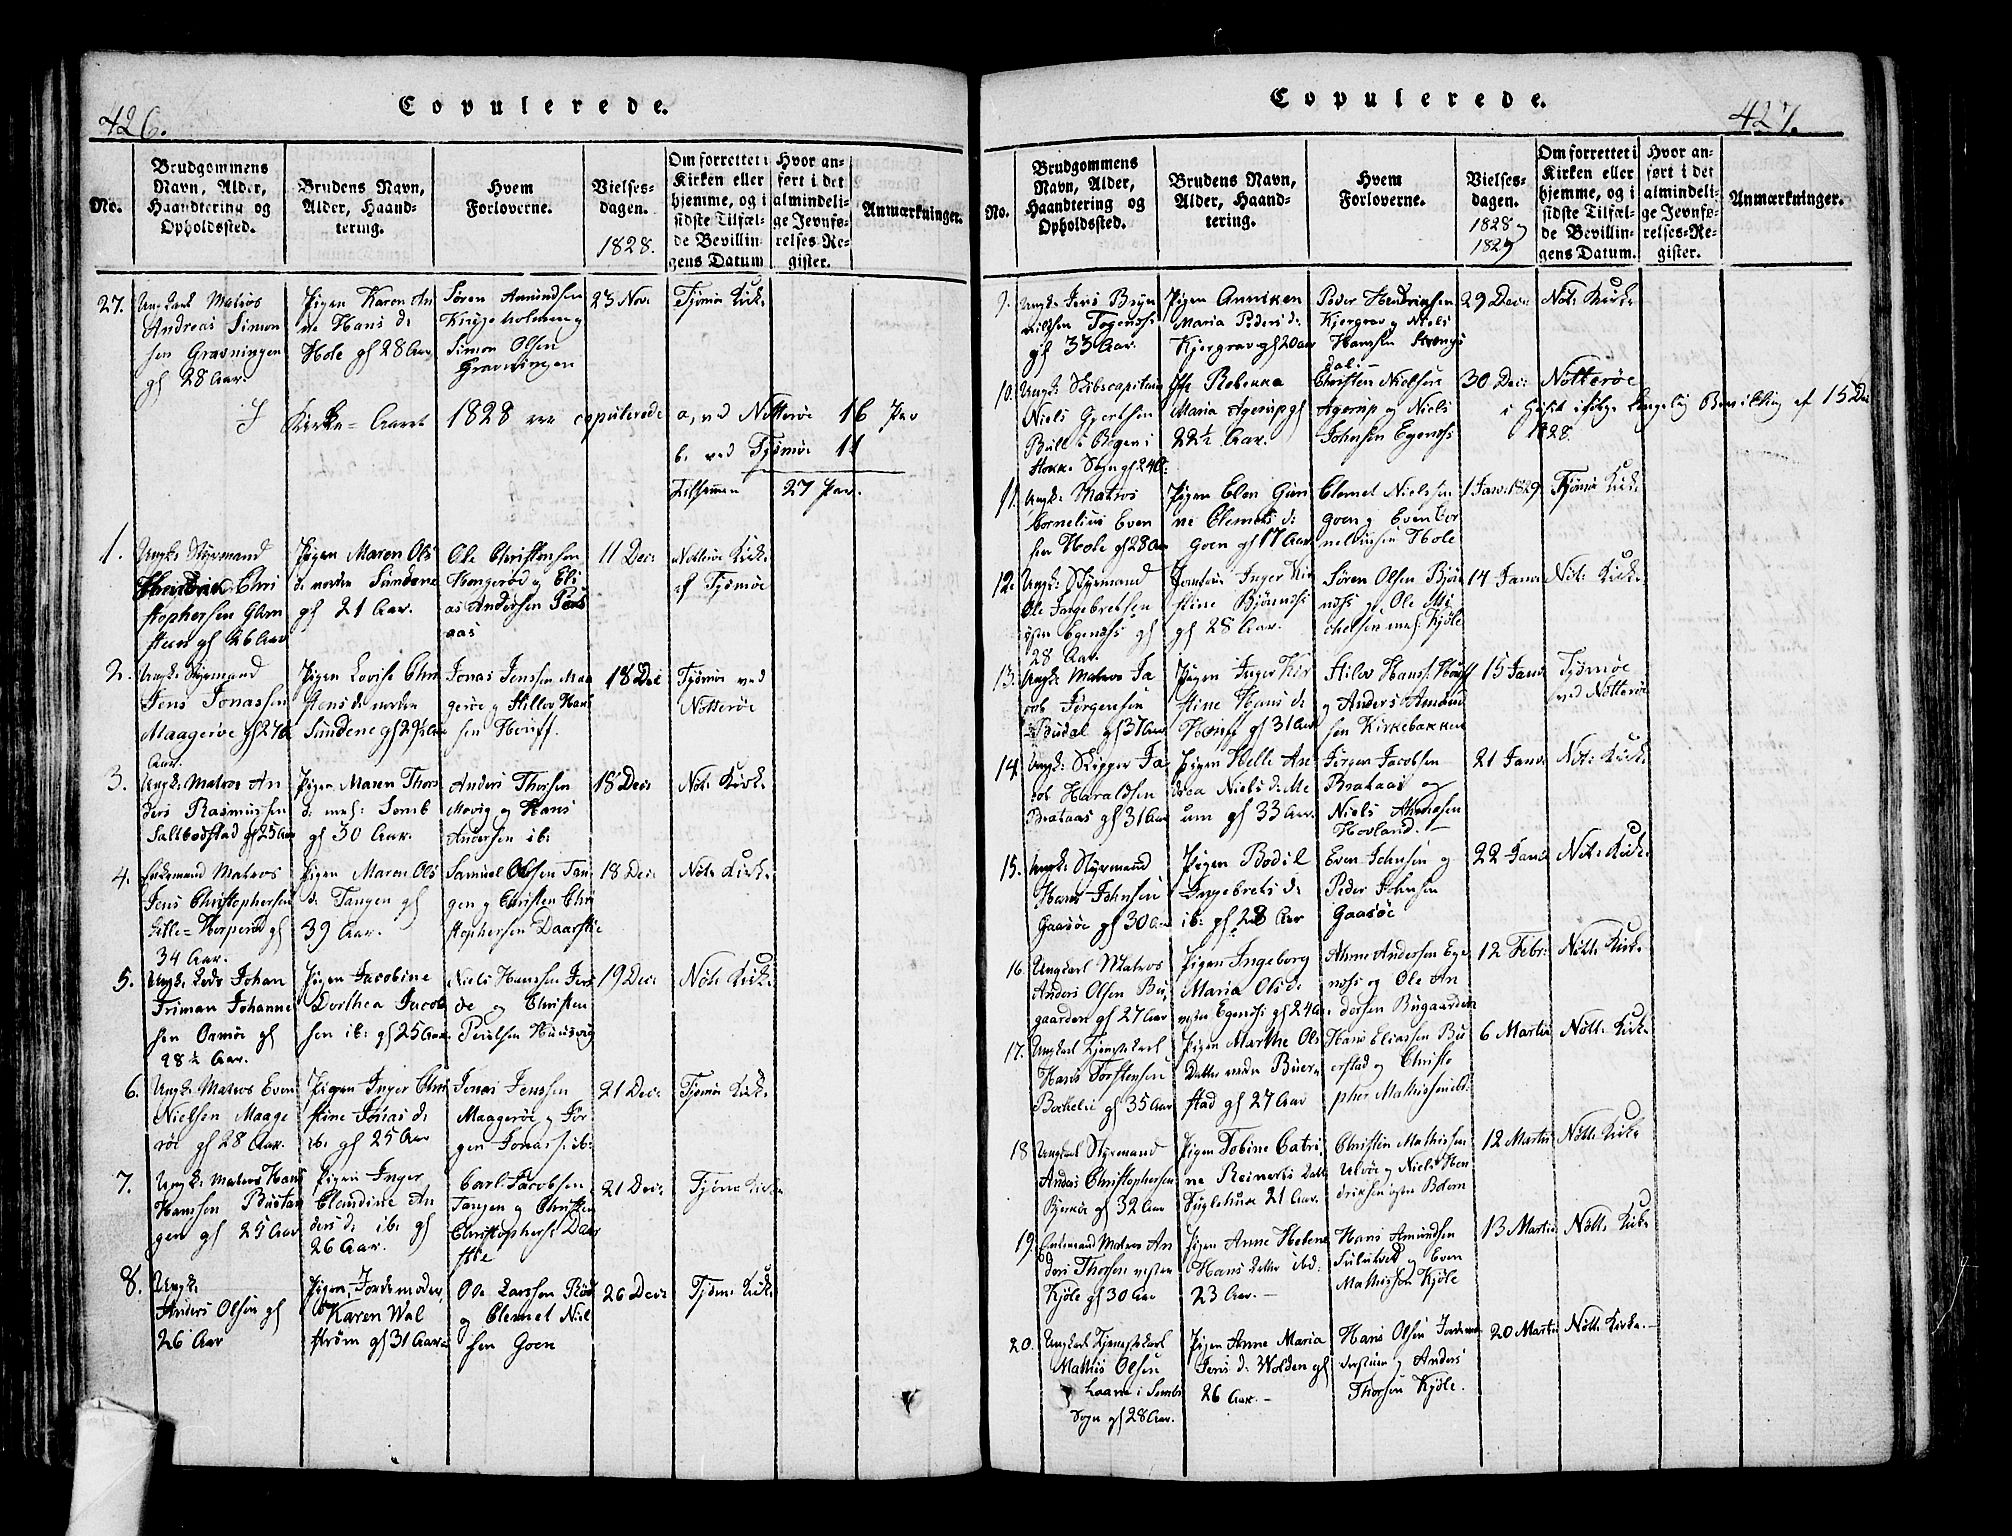 426.
Copulerede.
No.
Brudgommens
Navn, Alder,
Haandtering og
Opholdssted.
Brudens Navn,
Alder, Haand-
tering.
Hvem
Forloverne.
Vielses-
dagen.
1828.
Om forrettet i
Kirken eller
hjemme, og i
sidste Tilfæl-
de Bevillin-
gens Datum
Hvor an-
ført i det
almindeli-
ge Jevnfø-
relses-Re-
gister.
Anmærkninger.
27.
Ungkarl Matros
Andreas Simon
sen Gravningen
gl 28 Aar.
Pigen Karen An
ne Hans d:
Hole gl 28 Aar
Søren Amundsen
Simon Olsen
Gravningen
23 Nov:
Tjømø Kirk:
I Kirke-Aaret 1828 copulerede a, ved Nötteröe 16 Par
b. ved Tjømøe 11
Tilsammen 27 Par.
1.
Ungk: Styrmand
Chri
stophersen
gl 26 Aar
Pigen Maren Ols
d: nordre Sundene
gl 21 Aar.
Ole Christensen
og Eli
as Andersen
aas
11 Dec:
Nötteröe Kirk:
Tjømøe
2.
Ungk: Styrmand
Jens Jonassen
Maagerøe gl 27
Aar.
Pigen Lovise Chri
stens d: nordre
Sundene gl 22½ Aar
Jonas Jenssen Maa
gerøe og Hillov Hans
sen
18 Dec
Tjømøe ved
Nötterøe
3.
Ungk: Matros An
ders Rasmussen
Saltbodstad gl 25 Aar
Pigen Maren Thors
d: Semb
gl 30 Aar.
Anders Thorsen
og Hans
Andersen ib:
18 Dec:
Nöt: Kirk:
4.
Enkemand Matros
Jens Christophersen
Lille= gl
34 Aar.
Pigen Maren Ols
d: Tangen gl
39 Aar.
Samuel Olsen Tan
gen og Christen Chri
stophersen
18 Dec:
Nöt: Kirk:
5.
Ungk: Johan
Johanne
sen Ormøe gl
28½ Aar.
Pigen Jacobine
Dorthea Jacob
sen ib: gl 25 Aar
Niels Hanssen
og Christen
19 Dec:
Nöt: Kirk:
6.
Ungk: Matros Even
Nielsen Maage
røe gl 28 Aar.
Pigen Inger Chri
stine Jonas d:
ib: gl 25 Aar
Jonas Jenssen
Maagerøe og Jör
gen Jonass: ib:
21 Dec:
Tjömø Kirk:
7.
Ungk: Matros Hans
Hanssen Bustan
gen gl 25 Aar
Pigen Inger
An
ders d: ib: gl
26 Aar.
Carl Jacobsen
Tangen og Christen
Christophers:
21 Dec:
Tjöm: Kirk:
8.
Ungk:
Anders Olsen gl
26 Aar
Pigen, Jordemoder,
Karen Wal
ström gl 31 Aar
Ole Larssen
og Clemet Niel
sen Goen
26 Dec:
Tjöm: Kirk:
427.
Copulerede.
No.
Brudgommens
Navn, Alder,
Haandtering og
Opholdssted.
Brudens Navn,
Alder, Haand-
tering.
Hvem
Forloverne.
Vielses-
dagen.
1828
1829
Om forrettet i
Kirken eller
hjemme, og i
sidste Tilfæl-
de Bevillin-
gens Datum.
Hvor an-
ført i det
almindeli-
ge Jevnfø-
relses-Re-
gister.
Anmærkninger.
9.
Ungk:
gl 33 Aar.
Pigen Anniken
Maria Peders d:
Kjergrav gl 20 Aar
Peder Hendriksen
Kjergrav og Niels
Hanssen
dal.
29 Dec:
Nöt: Kirk:
10.
Ungk: Skibscapitain
Niels Gjertsen
Bull i
Stokke Sogn gl 24
Rebekka
Maria Agerup gl
22½ Aar.
Christen Nielsen
Agerup og Niels
Johnsen
30 Dec:
Nötterøe
i ifölge kongelig Bevilling af 15 Dec
1828.
11.
Ungk: Matros
Cornelius Even
sen Hole gl 28 Aar
Pigen Elen Guri
ne Clemets d:
Goen gl 17 Aar
Clemet Nielsen
Goen og Even Cor
neliussen Hole
1 Jan: 1829
Tjömø Kirk:
12.
Ungk: Styrmand
Ole Ingebretsen
gl
28 Aar.
Jomfrue Inger Kir
stine
gl 28 Aar.
Søren Olsen
og Ole Mi
chelsen Kjöle
14 Jan:
Nöt: Kirk:
13.
Ungk: Matros Ja
cob Jörgensen
Budal gl 37 Aar
Pigen Inger Kir
stine Hans d:
gl 31 Aar
Hilov Hans:
og Anders Amund
sen Kirkebakken
15 Jan:
Tjømøe
ved Nötterøe
14.
Ungk: Skipper Ja
cob Haraldsen
Brataas gl 31 Aar
Pigen Helle An
drea Niels d: Me
um gl 33 Aar.
Jörgen Jacobsen
Brataas og
Niels
Hovland.
21 Jan:
Nöt: Kirk:
15.
Ungk: Styrmand
Hans Johnsen
Gaasøe gl 30 Aar
Pigen Bodil
Ingebrets d:
ib: gl 28 Aar
Even Johnsen og
Peder Johnsen
Gaasøe
22 Jan:
Nöt: Kirk:
16.
Ungkarl Matros
Anders Olsen Bu
gaarden gl 27 Aar
Pigen Ingeborg
Maria Ols d:
gl 24 Aar
Andersen
og Ole An
dersen Bugaarden
12 Febr:
Nött: Kirk:
17.
Ungkarl Tjenestekarl
Hans Torstensen
gl 35 Aar
Pigen Marthe Ols
Datter Buer
stad gl 27 Aar
Hans Eliassen Bu
erstad og Christo
pher Mathissen ibd.
6 Martii
Nött: Kirk:
18
Ungkarl Styrmand
Anders Christophersen
gl 32 Aar
Pigen Tobine Catri
ne Reinerts Datt
21 Aar.
Christen Mathissen
og Niels Hen
driksen
12 Martii
Nött: Kirke
19.
Enkemand Matros An
ders Thorsen vestre
Kjöle gl 30 Aar
Pigen Anne Helene
Hans Datter ibd:
23 Aar.
Hans Amundsen
og Even
Mathissen Kjöle
13 Martii
Nött: Kirk:
20.
Ungkarl Tjenestekarl
Mathis Olsen
i Sembs
Sogn gl 28 Aar.
Pigen Anne Maria
Jens d: Wolden gl
26 Aar.
Hans Olsen
og Anders
Thorsen Kjöle.
20 Martii
Nött: Kirke